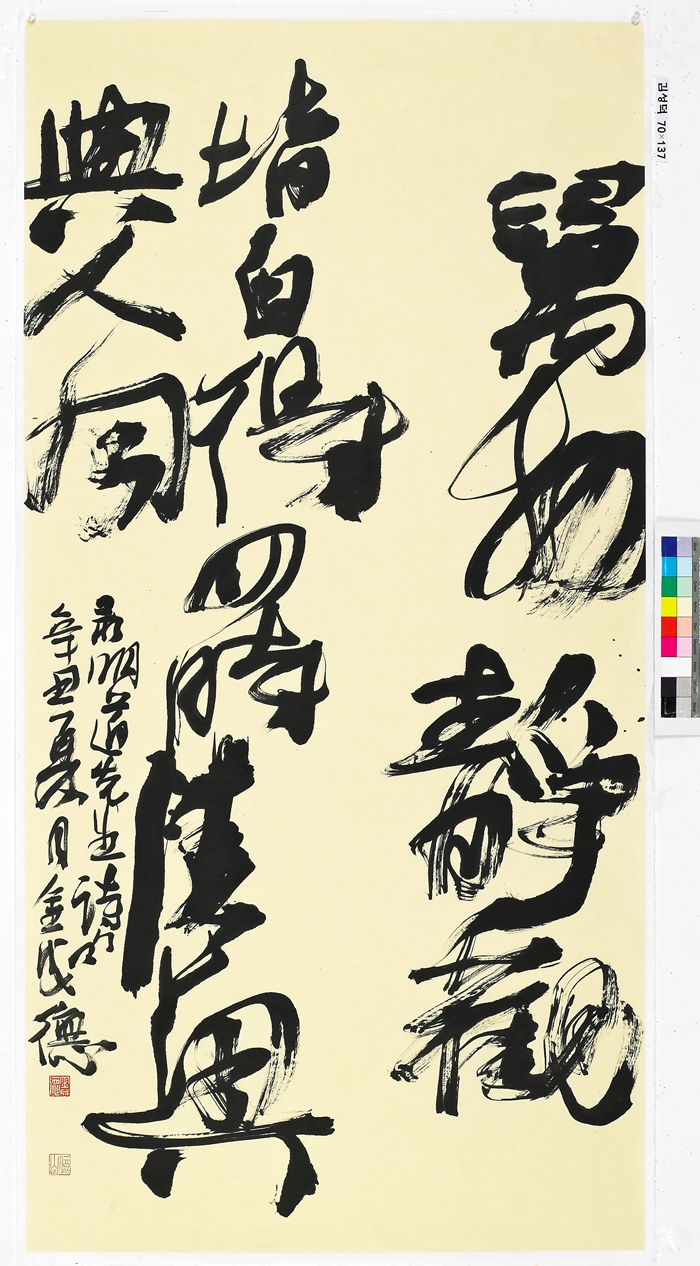 萬物靜觀
皆自得四時佳興
與人同
明道先生詩句
辛丑夏月 金成德
김성덕 70×137